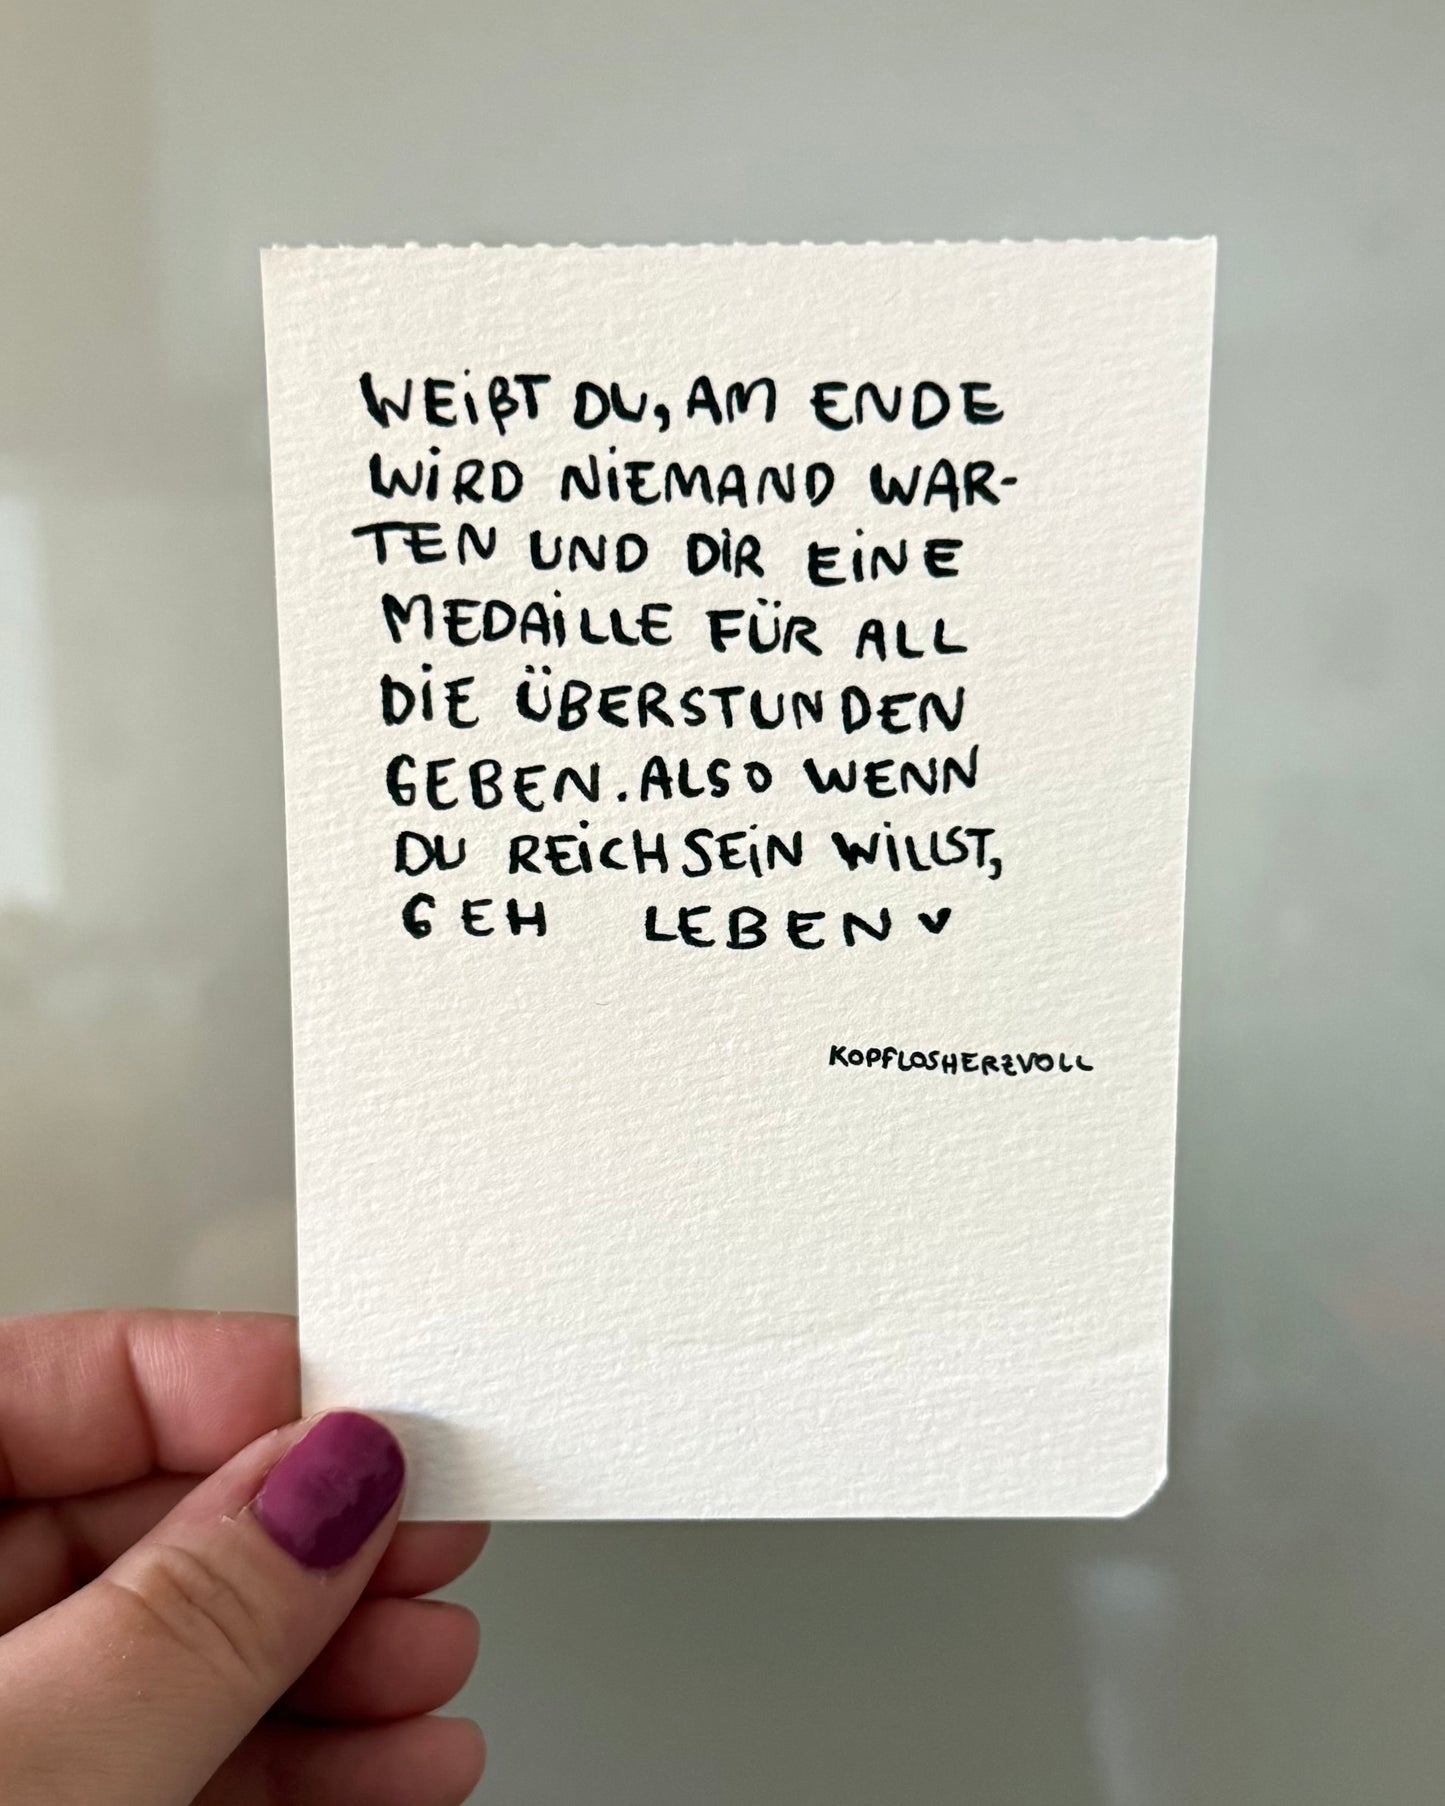 WEißT DU, AM ENDE
WiRD NiEMAND WAR-
TEN UND DiR EiNE
MEDAiLLE FÜR ALL
DiE ÜBERSTUNDEN
GEBEN. ALSO WENN
DU REiCH SEiN WiLLST,
GEH LEBEN ♥
KOPFLOSHERZVOLL